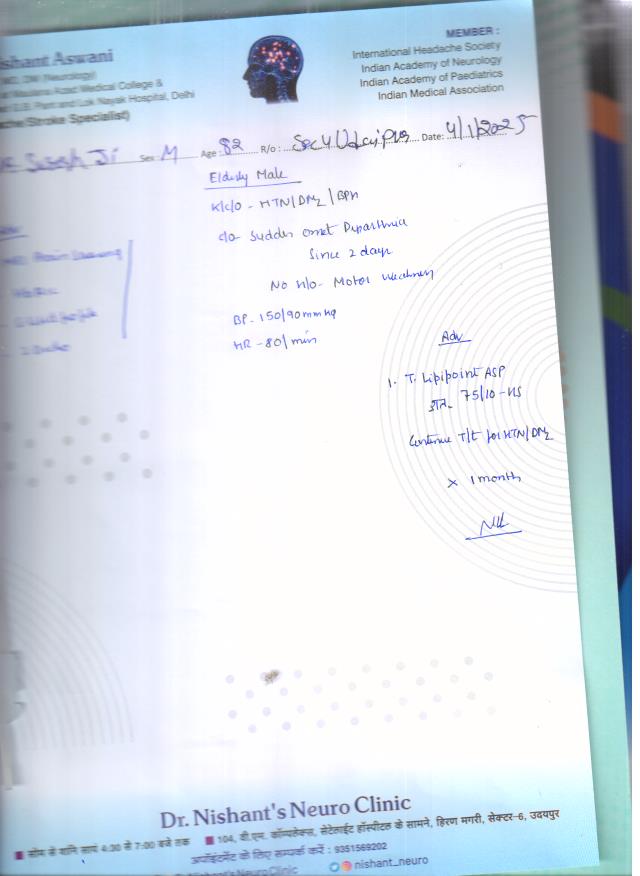 ishant Aswani
MD, DM (Neurology)
Azad Medical College &
G.B. Pant and Lok Nayak Hospital, Delhi
ache/Stroke Specialist)
MEMBER :
International Headache Society
Indian Academy of Neurology
Indian Academy of Paediatrics
Indian Medical Association
Suresh Ji Sex M Age : 82 R/o : Sec 4 Udaipur Date: 4/1/2025
Elderly Male
K/c/o - HTN/DM2/BPH
c/o Sudden onset Dysarthria
Since 2 days
No h/o - Motor Weakness
BP - 150/90 mmHg
HR - 80/min
Adv
1. T. Lipipoint ASP
75/10 - HS
Continue T/t for HTN/DM2
x 1 month
Dr. Nishant's Neuro Clinic
सोम से शनि सायं 4:30 से 7:00 बजे तक 104, वी.एम. कॉम्पलेक्स, सेटेलाईट हॉस्पीटल के सामने, हिरण मगरी, सेक्टर-6, उदयपुर
अपॉइंटमेंट के लिए सम्पर्क करें : 9351569202
NeuroClinic nishant_neuro